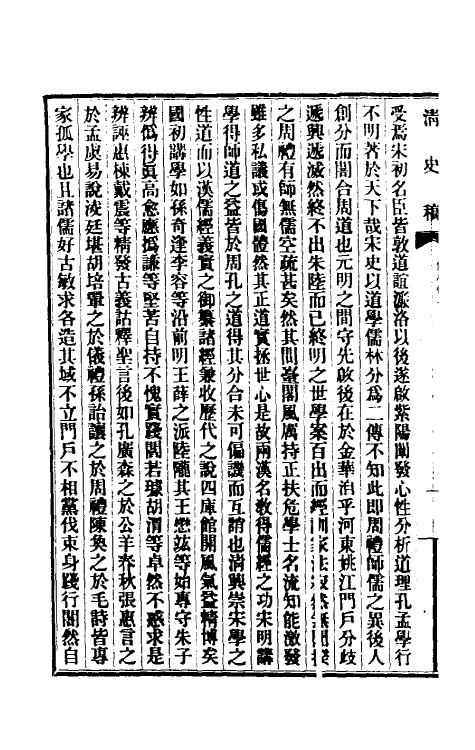 清史稿
受焉宋初名臣皆敦道誼濂洛以後遂啟紫陽闡發心性分析道理孔孟學行
不明著於天下哉宋史以道學儒林分為二傳不知此即周禮師儒之異後人
創分而闇合周道也元明之間守先啟後在於金華洎乎河東姚江門戶分歧
遞興遞滅然終不出朱陸而已終明之世學案百出而經訓家法寂然無聞揆
之周禮有師無儒空疏甚矣然其間臺閣風厲持正扶危學士名流知能激發
雖多私議或傷國體然其正道實拯世心是故兩漢名教得儒經之功宋明講
學得師道之益皆於周孔之道得其分合未可偏譏而互誚也清興崇宋學之
性道而以漢儒經義實之御纂諸經兼收歷代之說四庫館開風氣益精博矣
國初講學如孫奇逢李容等沿前明王薛之派陸隴其王懋竑等始專守朱子
辨偽得真高愈應撝謙等堅苦自持不愧實踐閻若璩胡渭等卓然不惑求是
辨誣惠棟戴震等精發古義詁釋聖言後如孔廣森之於公羊春秋張惠言之
於孟虞易說凌廷堪胡培翬之於儀禮孫詒讓之於周禮陳奐之於毛詩皆專
家孤學也且諸儒好古敏求各造其域不立門戶不相黨伐束身踐行闇然自